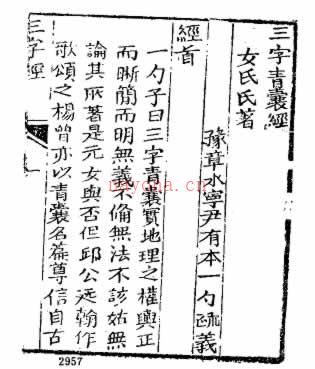 三字青囊經
女氏氏著
豫章水寧尹有本一勺疏義
經首
一勺子曰三字青囊實地理之權輿正
而晰簡而明無義不備無法不該姑無
論其所著是元女與否但邱公延翰作
歌頌之楊曾亦以青囊名篇尊信自古
三字經
一
nayona.cn
2957